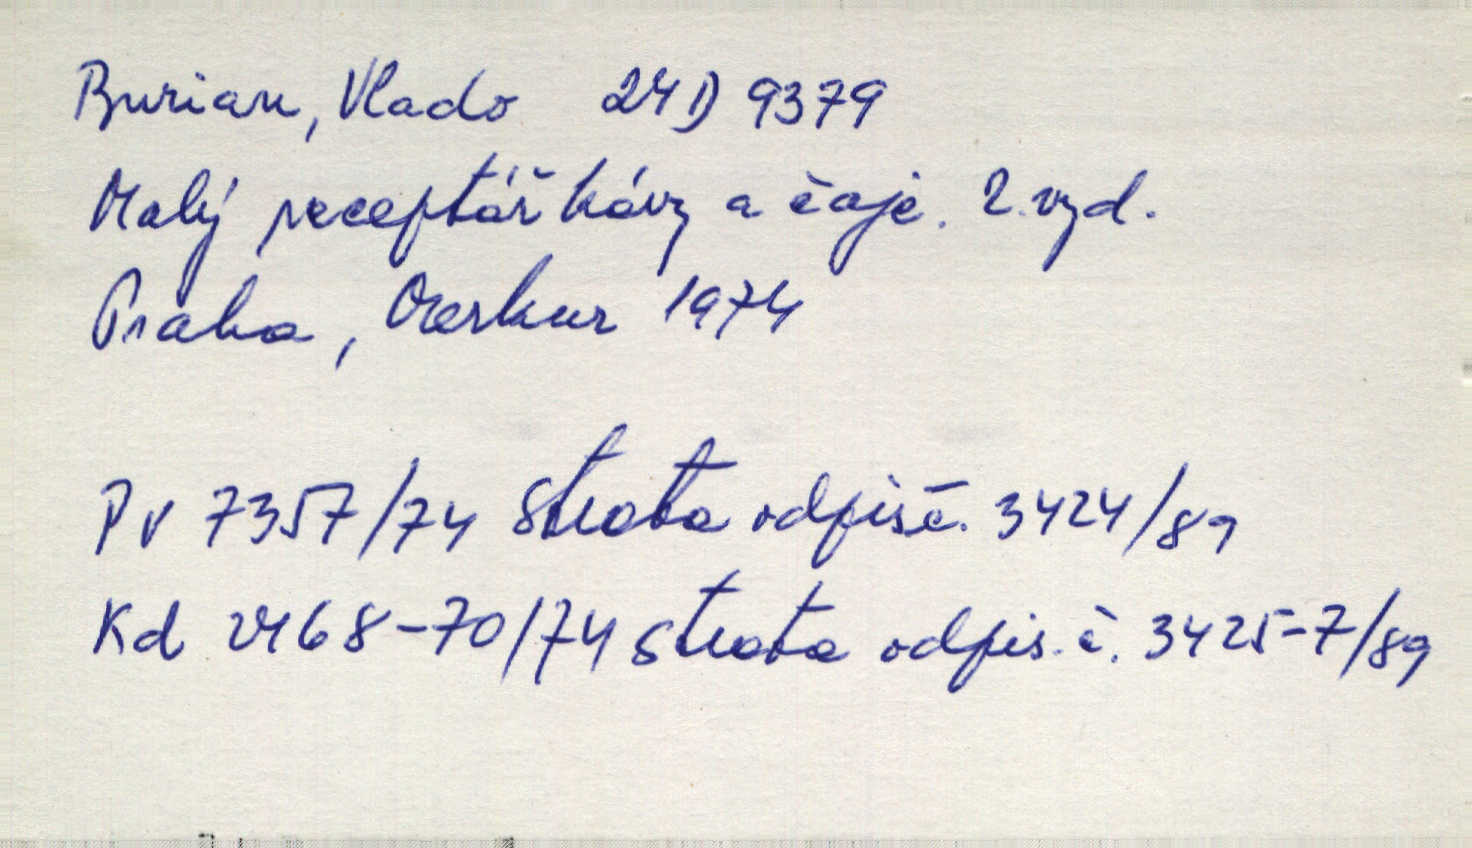 Burian, Vlado 24D 9379
Malý receptář kávy a čaje. 2. vyd.
Praha, Merkur 1974
Pv 7357/74 strata odpis č. 3424/89
Kd 2468-70/74 strata odpis. č. 3425-7/89